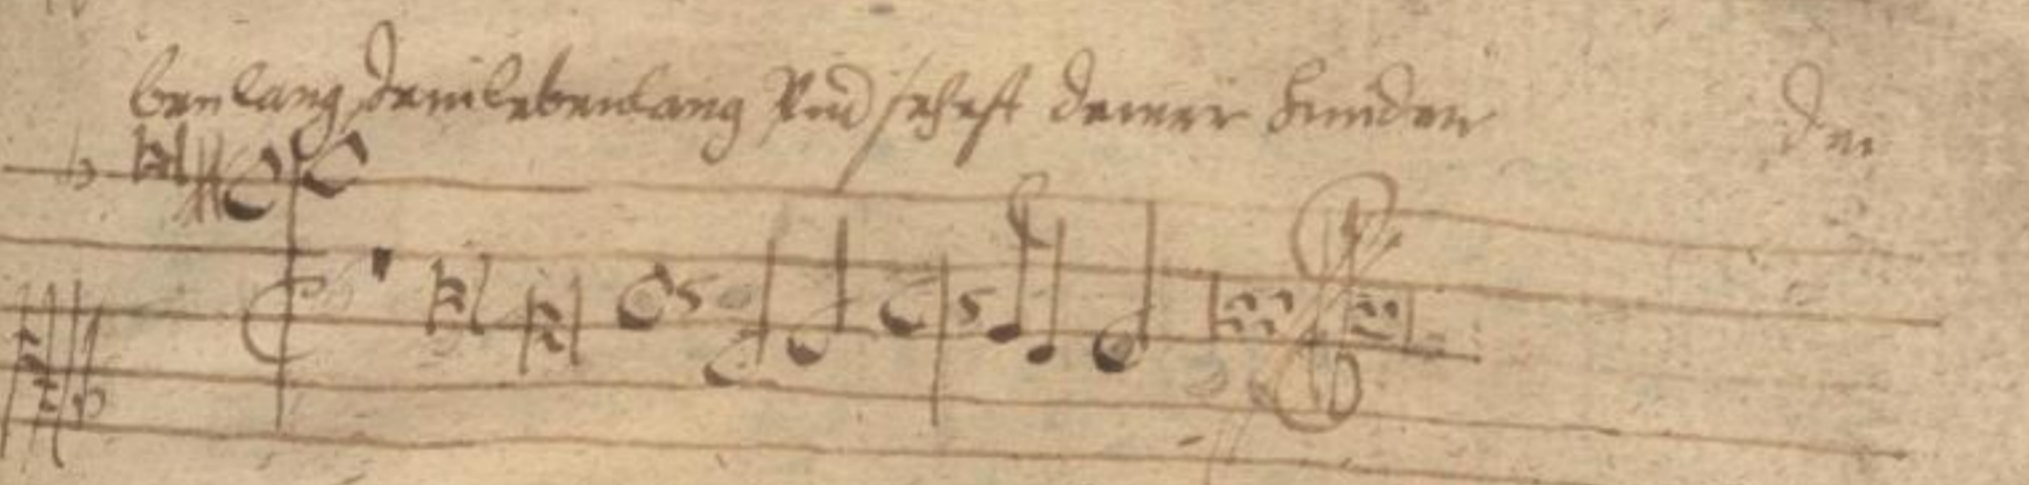 ben lang, dein lebenlang Vnd sehest deiner Kinder